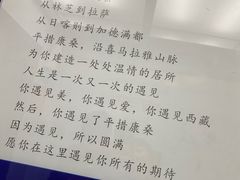 从林芝到拉萨
从日喀则到加德满都
平措康桑，沿喜马拉雅山脉
为你建造一处处温情的居所
人生是一次又一次的遇见
你遇见美，你遇见爱，你遇见西藏
然后，你遇见了平措康桑
因为遇见，所以圆满
愿你在这里遇见你所有的期待